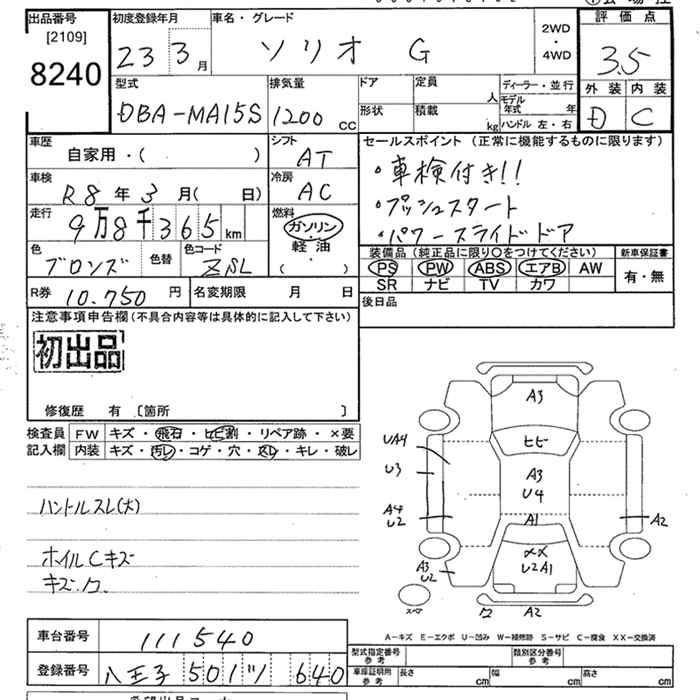 出品番号
[2109]
8240
初度登録年月
23 3月
車名・グレード
ソリオ G
2WD
・
4WD
評価点
3.5
外装 内装
D C
型式
DBA-MA15S
排気量
1200 cc
ドア
形状
定員 人
積載 kg
ディーラー・並行
モデル年式 年
ハンドル 左・右
車歴
自家用・( )
シフト
AT
車検
R8年3月( 日)
冷房
AC
走行
9万8千365km
燃料
ガソリン
・
軽油
( )
色
ブロンズ
色替
色コード
ZSL
R券 10.750円
名変期限 月 日
セールスポイント(正常に機能するものに限ります)
・車検付き!!
・プッシュスタート
・パワースライドドア
装備品(純正品に限り○をつけてください)
PS PW ABS エアB AW
SR ナビ TV カワ
新車保証書
有・無
後日品
注意事項申告欄(不具合内容等は具体的に記入して下さい)
初出品
修復歴 有 〔箇所 〕
検査員記入欄
FW キズ・飛石・ヒビ割・リペア跡・×要
内装 キズ・汚レ・コゲ・穴・スレ・キレ・破レ
ハンドルスレ(大)
ホイルCキズ
A3
ヒビ
A3
U4
A1
XX
U2A1
UA4
U3
A4
U2
A3
U2
A2
A2
スペア
A-キズ E-エクボ U-凹み W-補修跡 S-サビ C-腐食 XX-交換済
車台番号 111540
登録番号 八王子 501 ツ 640
型式指定番号
参考
類別区分番号
参考
車庫証明用
参考
長さ cm
幅 cm
高さ cm